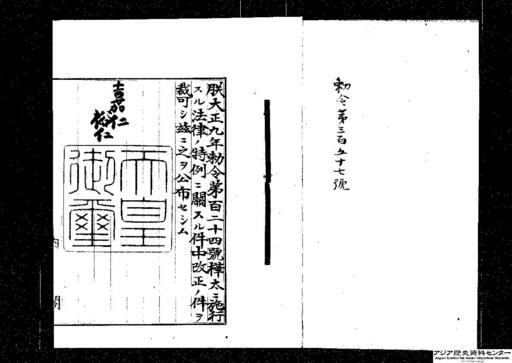 勅令第三百五十七號
朕大正九年勅令第百二十四號樺太ニ施行
スル法律ノ特例ニ關スル件中改正ノ件ヲ
裁可シ茲ニ之ヲ公布セシム
嘉仁
裕仁
天皇
御璽
内閣
アジア歴史資料センター
Japan Center for Asian Historical Records